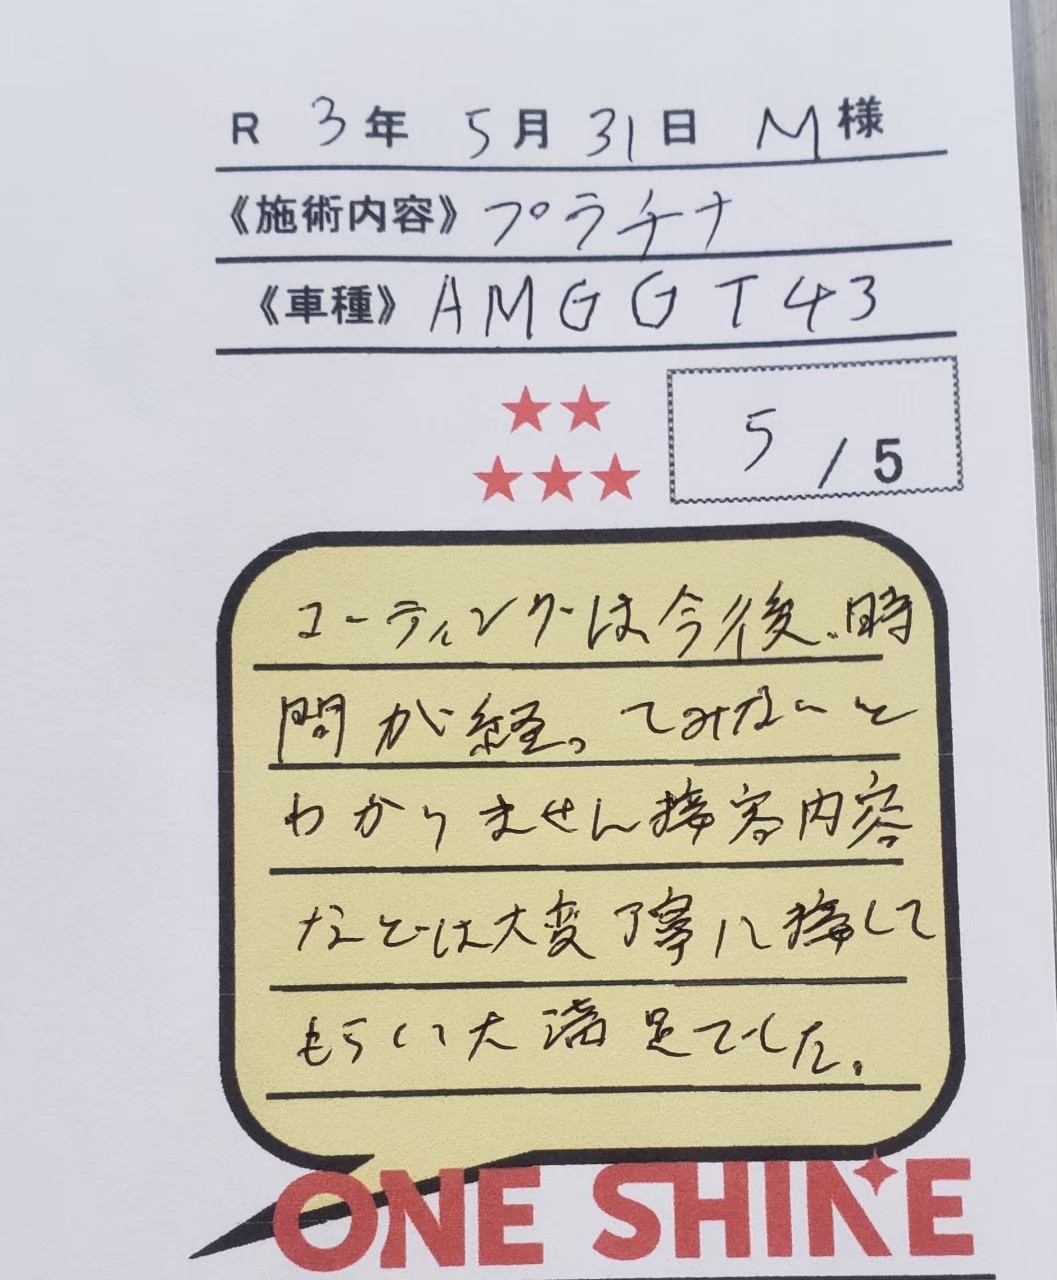 R 3年 5月 31日 M様
《施術内容》プラチナ
《車種》AMG GT43
5/5
コーティングは今後、時
間が経ってみないと
わかりません接客内容
などは大変丁寧に接して
もらい大満足でした。
ONE SHINE